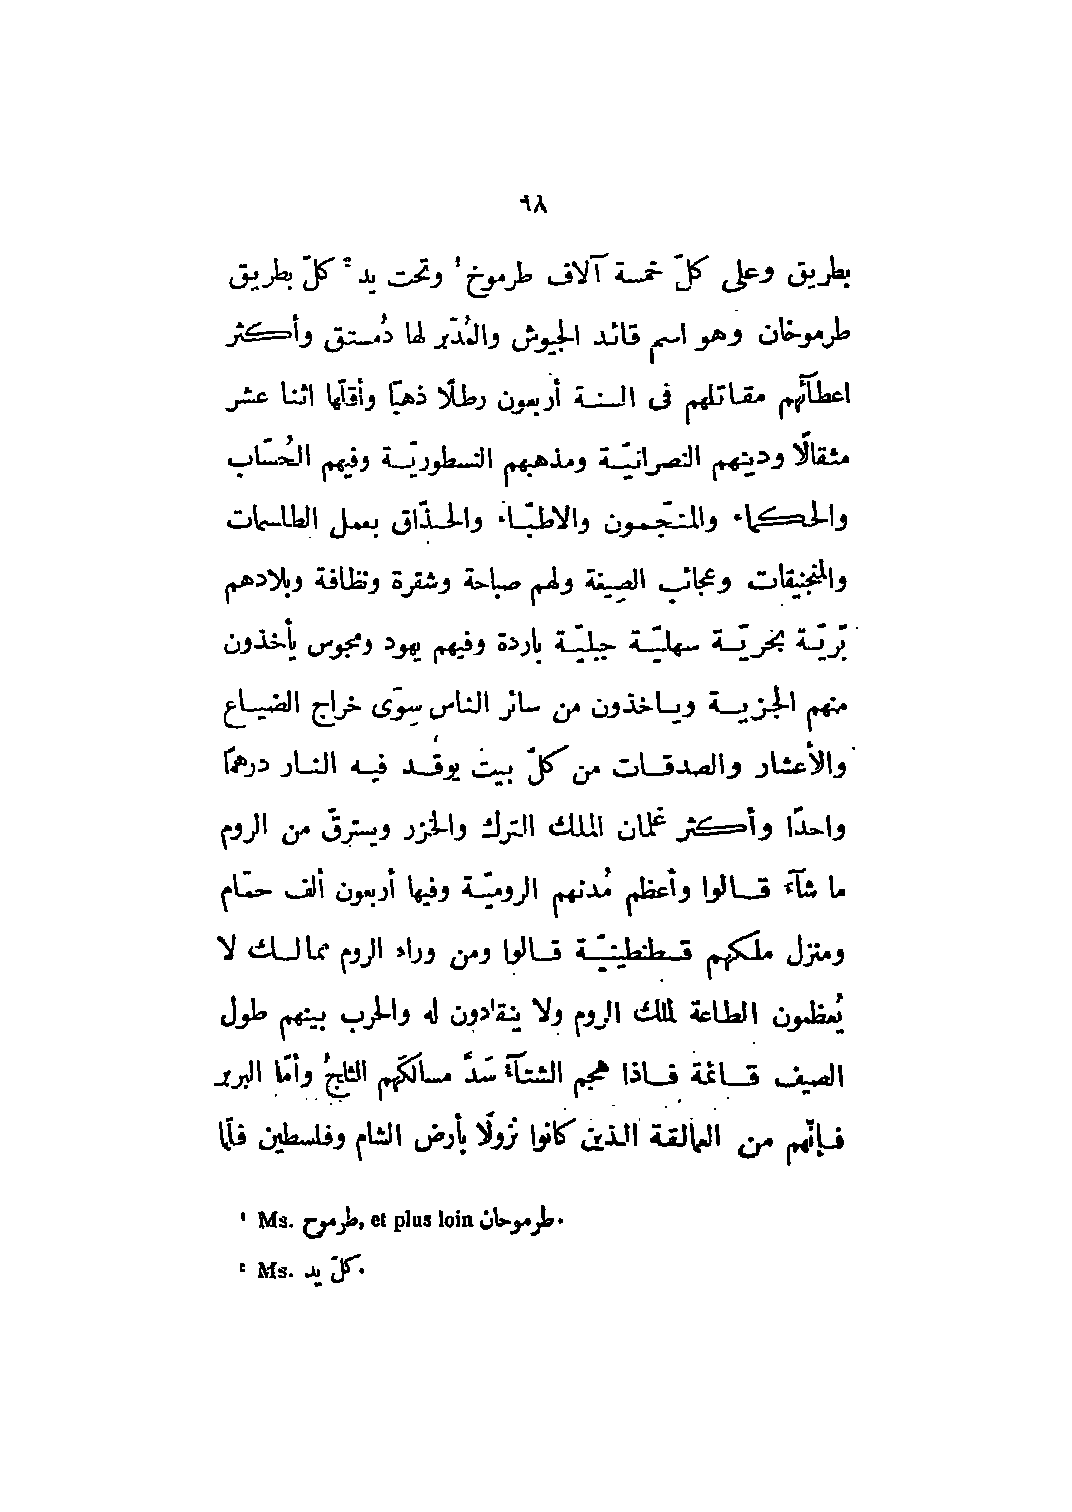 ٦٨
بطريق وعلى كلّ خمسة آلاف طرموخ¹ وتحت يد² كلّ بطريق
طرموخان وهو اسم قائد الجيوش والمُدَبّر لها دُمستق وأكثر
اعطآئهم مقاتلهم فى السنة أربعون رطلًا ذهبًا وأقلّها اثنا عشر
مثقالًا ودينهم النصرانيّة ومذهبهم النسطوريّة وفيهم الحُسّاب
والحكماء والمنجّمون والاطبّاء والحذّاق بعمل الطلسمات
والمنجنيقات وعجائب الصيغة ولهم صباحة وشقرة ونظافة وبلادهم
بَرّيّة بحَريّة سهليّة جبليّة باردة وفيهم يهود ومجوس يأخذون
منهم الجزية وياخذون من سائر الناس سِوَى خراج الضياع
والأعشار والصدقات من كلّ بيت يوقُد فيه النار درهمًا
واحدًا وأكثر غلمان الملك الترك والخزر ويسترقّ من الروم
ما شآء قالوا وأعظم مُدنهم الروميّة وفيها أربعون ألف حمّام
ومنزل ملكهم قسطنطينيّة قالوا ومن وراء الروم ممالك لا
يُعظمون الطاعة لملك الروم ولا ينقادون له والحرب بينهم طول
الصيف قائمة فاذا هجم الشتآءُ سَدَّ مسالكَهم الثلجُ وأمّا البربر
فإنّهم من العمالقة الذين كانوا نزولًا بأرض الشام وفلسطين فلمّا
¹ Ms. طرموح, et plus loin طرموحان.
² Ms. كلّ يد.